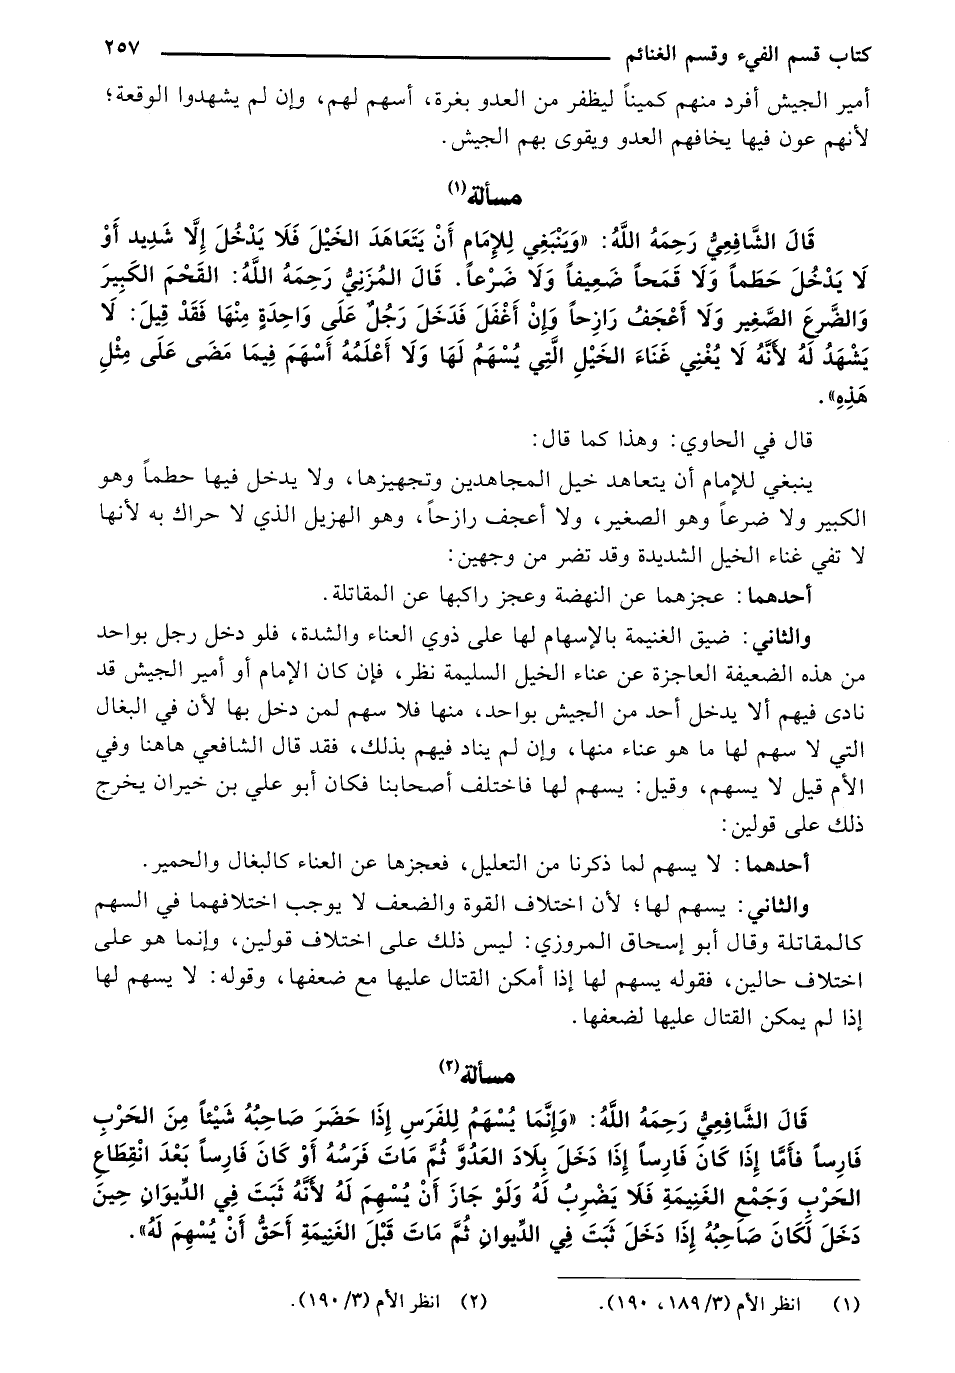 كتاب قسم الفيء وقسم الغنائم ٢٥٧
أمير الجيش أفرد منهم كميناً ليظفر من العدو بغرة، أسهم لهم، وإن لم يشهدوا الوقعة؛
لأنهم عون فيها يخافهم العدو ويقوى بهم الجيش.
مسألة(١)
قَالَ الشَّافِعِيُّ رَحِمَهُ اللَّهُ: «وَيَنْبَغِي لِلإِمَامِ أَنْ يَتَعَاهَدَ الخَيْلَ فَلَا يَدْخُلَ إِلَّا شَدِيد أَوْ
لَا يَدْخُلَ حَطَماً وَلَا قَمَحاً ضَعِيفاً وَلَا ضَرْعاً. قَالَ المُزَنِيُّ رَحِمَهُ اللَّهُ: القَحْمَ الكَبِيرَ
وَالضَّرعَ الصَّغِير وَلَا أَعْجَفُ رَازِحاً وَإِنْ أَغْفَلَ فَدَخَلَ رَجُلٌ عَلَى وَاحِدَةٍ مِنْهَا فَقَدْ قِيلَ: لَا
يَشْهَدُ لَهُ لأَنَّهُ لَا يُغْنِي غَنَاءَ الخَيْلِ الَّتِي يُسْهَمُ لَهَا وَلَا أَعْلَمُهُ أَسْهَمَ فِيمَا مَضَى عَلَى مِثْلِ
هَذِهِ».
قال في الحاوي: وهذا كما قال:
ينبغي للإمام أن يتعاهد خيل المجاهدين وتجهيزها، ولا يدخل فيها حطماً وهو
الكبير ولا ضرعاً وهو الصغير، ولا أعجف رازحاً، وهو الهزيل الذي لا حراك به لأنها
لا تفي غناء الخيل الشديدة وقد تضر من وجهين:
أحدهما: عجزهما عن النهضة وعجز راكبها عن المقاتلة.
والثاني: ضيق الغنيمة بالإسهام لها على ذوي العناء والشدة، فلو دخل رجل بواحد
من هذه الضعيفة العاجزة عن عناء الخيل السليمة نظر، فإن كان الإمام أو أمير الجيش قد
نادى فيهم ألا يدخل أحد من الجيش بواحد، منها فلا سهم لمن دخل بها لأن في البغال
التي لا سهم لها ما هو عناء منها، وإن لم يناد فيهم بذلك، فقد قال الشافعي هاهنا وفي
الأم قيل لا يسهم، وقيل: يسهم لها فاختلف أصحابنا فكان أبو علي بن خيران يخرج
ذلك على قولين:
أحدهما: لا يسهم لما ذكرنا من التعليل، فعجزها عن العناء كالبغال والحمير.
والثاني: يسهم لها؛ لأن اختلاف القوة والضعف لا يوجب اختلافهما في السهم
كالمقاتلة وقال أبو إسحاق المروزي: ليس ذلك على اختلاف قولين، وإنما هو على
اختلاف حالين، فقوله يسهم لها إذا أمكن القتال عليها مع ضعفها، وقوله: لا يسهم لها
إذا لم يمكن القتال عليها لضعفها.
مسألة(٢)
قَالَ الشَّافِعِيُّ رَحِمَهُ اللَّهُ: «وَإِنَّمَا يُسْهَمُ لِلفَرَسِ إِذَا حَضَرَ صَاحِبُهُ شَيْئاً مِنَ الحَرْبِ
فَارِساً فأَمَّا إِذَا كَانَ فَارِساً إِذَا دَخَلَ بِلَادَ العَدُوَّ ثُمَّ مَاتَ فَرَسُهُ أَوْ كَانَ فَارِساً بَعْدَ انْقِطَاعِ
الحَرْبِ وَجَمْعِ الغَنِيمَةِ فَلَا يَضْرِبُ لَهُ وَلَوْ جَازَ أَنْ يُسْهِمَ لَهُ لأَنَّهُ ثَبَتَ فِي الدِّيوَانِ حِينَ
دَخَلَ لَكَانَ صَاحِبُهُ إِذَا دَخَلَ ثَبَتَ فِي الدِّيوانِ ثُمَّ مَاتَ قَبْلَ الغَنِيمَةِ أَحَقُّ أَنْ يُسْهِمَ لَهُ».
(١) انظر الأم (٣/ ١٨٩، ١٩٠). (٢) انظر الأم (٣/ ١٩٠).